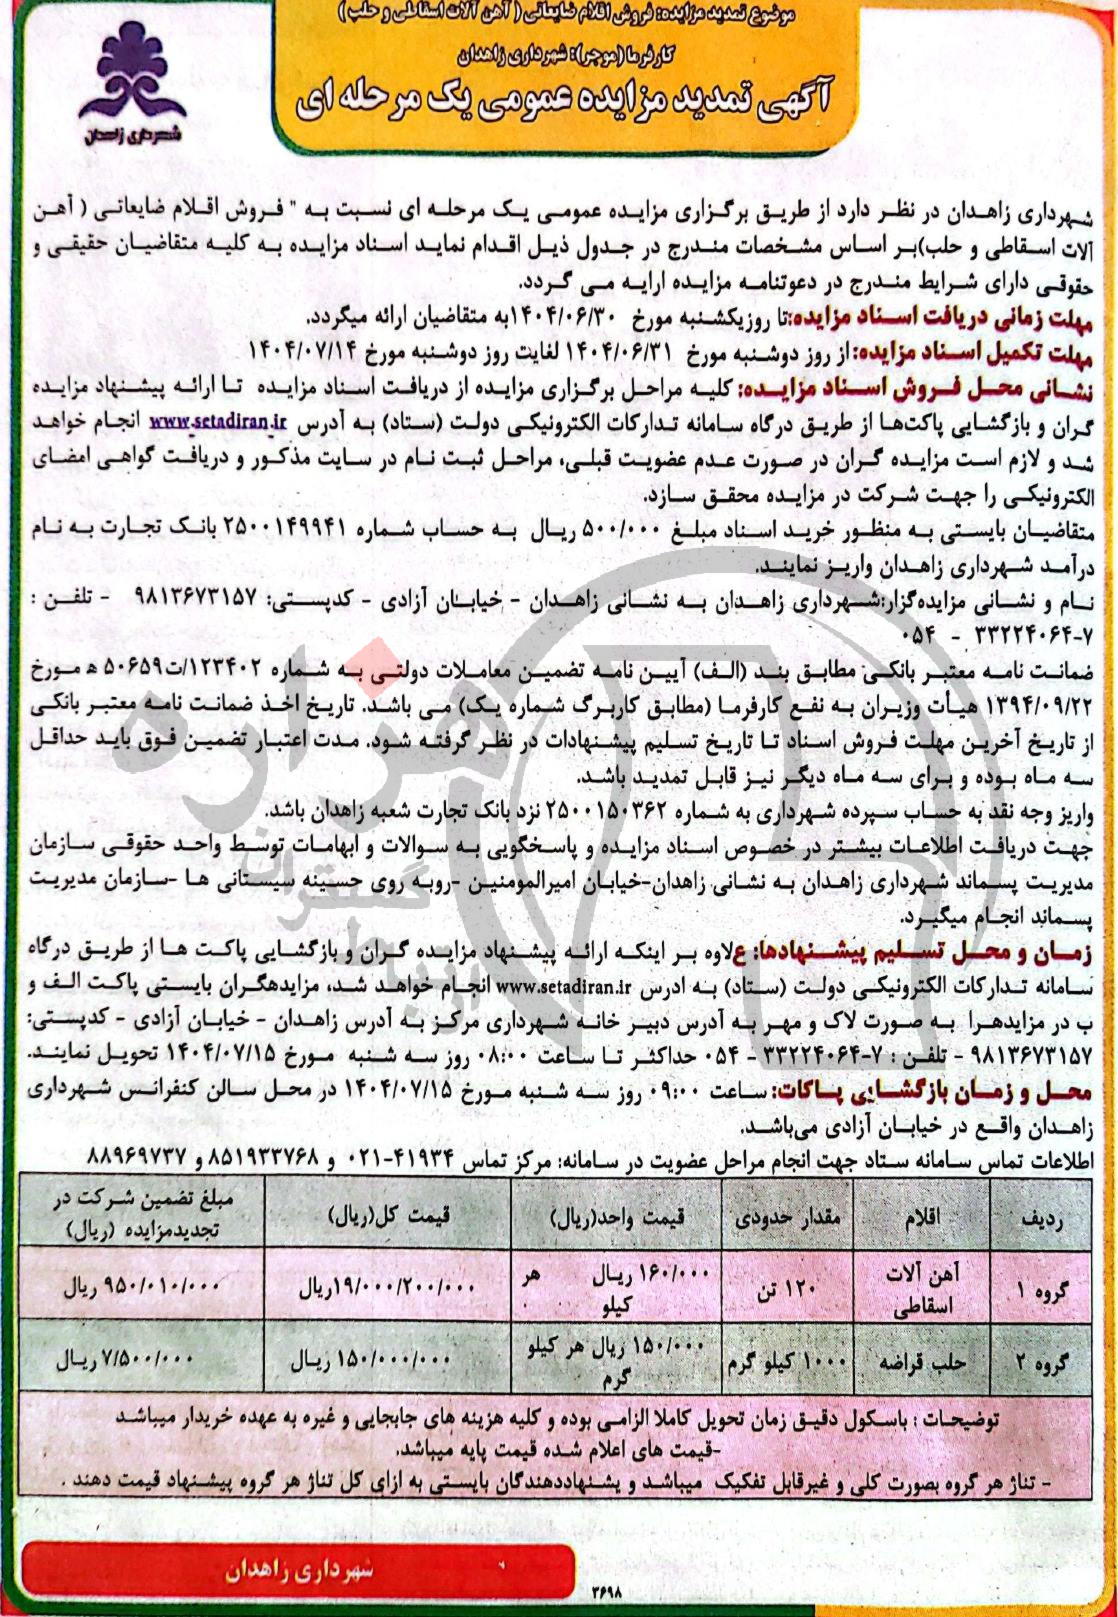 موضوع تمدید مزایده: فروش اقلام ضایعاتی ( آهن آلات اسقاطی و حلب )
کارفرما (موجر): شهرداری زاهدان
آگهی تمدید مزایده عمومی یک مرحله ای
شهرداری زاهدان
شهرداری زاهدان در نظر دارد از طریق برگزاری مزایده عمومی یک مرحله ای نسبت به " فروش اقلام ضایعاتی ( آهن
آلات اسقاطی و حلب)بر اساس مشخصات مندرج در جدول ذیل اقدام نماید اسناد مزایده به کلیه متقاضیان حقیقی و
حقوقی دارای شرایط مندرج در دعوتنامه مزایده ارایه می گردد.
مهلت زمانی دریافت اسناد مزایده:تا روزیکشنبه مورخ ۱۴۰۴/۰۶/۳۰به متقاضیان ارائه میگردد.
مهلت تکمیل اسناد مزایده:از روز دوشنبه مورخ ۱۴۰۴/۰۶/۳۱ لغایت روز دوشنبه مورخ ۱۴۰۴/۰۷/۱۴
نشانی محل فروش اسناد مزایده: کلیه مراحل برگزاری مزایده از دریافت اسناد مزایده تا ارائه پیشنهاد مزایده
گران و بازگشایی پاکت‌ها از طریق درگاه سامانه تدارکات الکترونیکی دولت (ستاد) به آدرس www.setadiran.ir انجام خواهد
شد و لازم است مزایده گران در صورت عدم عضویت قبلی، مراحل ثبت نام در سایت مذکور و دریافت گواهی امضای
الکترونیکی را جهت شرکت در مزایده محقق سازد.
متقاضیان بایستی به منظور خرید اسناد مبلغ ۵۰۰/۰۰۰ ریال به حساب شماره ۲۵۰۰۱۴۹۹۴۱ بانک تجارت به نام
درآمد شهرداری زاهدان واریز نمایند.
نام و نشانی مزایده‌گزار:شهرداری زاهدان به نشانی زاهدان - خیابان آزادی - کدپستی: ۹۸۱۳۶۷۳۱۵۷ - تلفن :
۳۳۲۲۴۰۶۴-۷ - ۰۵۴
ضمانت نامه معتبر بانکی مطابق بند (الف) آیین نامه تضمین معاملات دولتی به شماره ۱۲۳۴۰۲/ت۵۰۶۵۹ ه مورخ
۱۳۹۴/۰۹/۲۲ هیأت وزیران به نفع کارفرما (مطابق کاربرگ شماره یک) می باشد. تاریخ اخذ ضمانت نامه معتبر بانکی
از تاریخ آخرین مهلت فروش اسناد تا تاریخ تسلیم پیشنهادات در نظر گرفته شود. مدت اعتبار تضمین فوق باید حداقل
سه ماه بوده و برای سه ماه دیگر نیز قابل تمدید باشد.
واریز وجه نقد به حساب سپرده شهرداری به شماره ۲۵۰۰۱۵۰۳۶۲ نزد بانک تجارت شعبه زاهدان باشد.
جهت دریافت اطلاعات بیشتر در خصوص اسناد مزایده و پاسخگویی به سوالات و ابهامات توسط واحد حقوقی سازمان
مدیریت پسماند شهرداری زاهدان به نشانی زاهدان-خیابان امیرالمومنین -روبه روی حسینه سیستانی ها -سازمان مدیریت
پسماند انجام میگیرد.
زمان و محل تسلیم پیشنهادها: علاوه بر اینکه ارائه پیشنهاد مزایده گران و بازگشایی پاکت ها از طریق درگاه
سامانه تدارکات الکترونیکی دولت (ستاد) به ادرس www.setadiran.ir انجام خواهد شد، مزایدهگران بایستی پاکت الف و
ب در مزایدهرا به صورت لاک و مهر به آدرس دبیر خانه شهرداری مرکز به آدرس زاهدان - خیابان آزادی - کدپستی:
۹۸۱۳۶۷۳۱۵۷ - تلفن : ۷-۳۳۲۲۴۰۶۴ - ۰۵۴ حداکثر تا ساعت ۰۸:۰۰ روز سه شنبه مورخ ۱۴۰۴/۰۷/۱۵ تحویل نمایند.
محل و زمان بازگشایی پاکات: ساعت ۰۹:۰۰ روز سه شنبه مورخ ۱۴۰۴/۰۷/۱۵ در محل سالن کنفرانس شهرداری
زاهدان واقع در خیابان آزادی می‌باشد.
اطلاعات تماس سامانه ستاد جهت انجام مراحل عضویت در سامانه: مرکز تماس ۴۱۹۳۴-۰۲۱ و ۸۵۱۹۳۳۷۶۸و ۸۸۹۶۹۷۳۷
ردیف اقلام مقدار حدودی قیمت واحد(ریال) قیمت کل(ریال) مبلغ تضمین شرکت در
تجدیدمزایده (ریال)
گروه ۱ آهن آلات ۱۲۰ تن ۱۶۰/۰۰۰ ریال هر ۱۹/۰۰۰/۲۰۰/۰۰۰ریال ۹۵۰/۰۱۰/۰۰۰ ریال
اسقاطی کیلو
گروه ۲ حلب قراضه ۱۰۰۰ کیلو گرم ۱۵۰/۰۰۰ ریال هر کیلو ۱۵۰/۰۰۰/۰۰۰ ریال ۷/۵۰۰/۰۰۰ ریال
گرم
توضیحات : باسکول دقیق زمان تحویل کاملا الزامی بوده و کلیه هزینه های جابجایی و غیره به عهده خریدار میباشد
-قیمت های اعلام شده قیمت پایه میباشد.
- تناژ هر گروه بصورت کلی و غیرقابل تفکیک میباشد و پشنهاددهندگان بایستی به ازای کل تناژ هر گروه پیشنهاد قیمت دهند .
شهرداری زاهدان
۳۶۹۸
هزاره
گستران